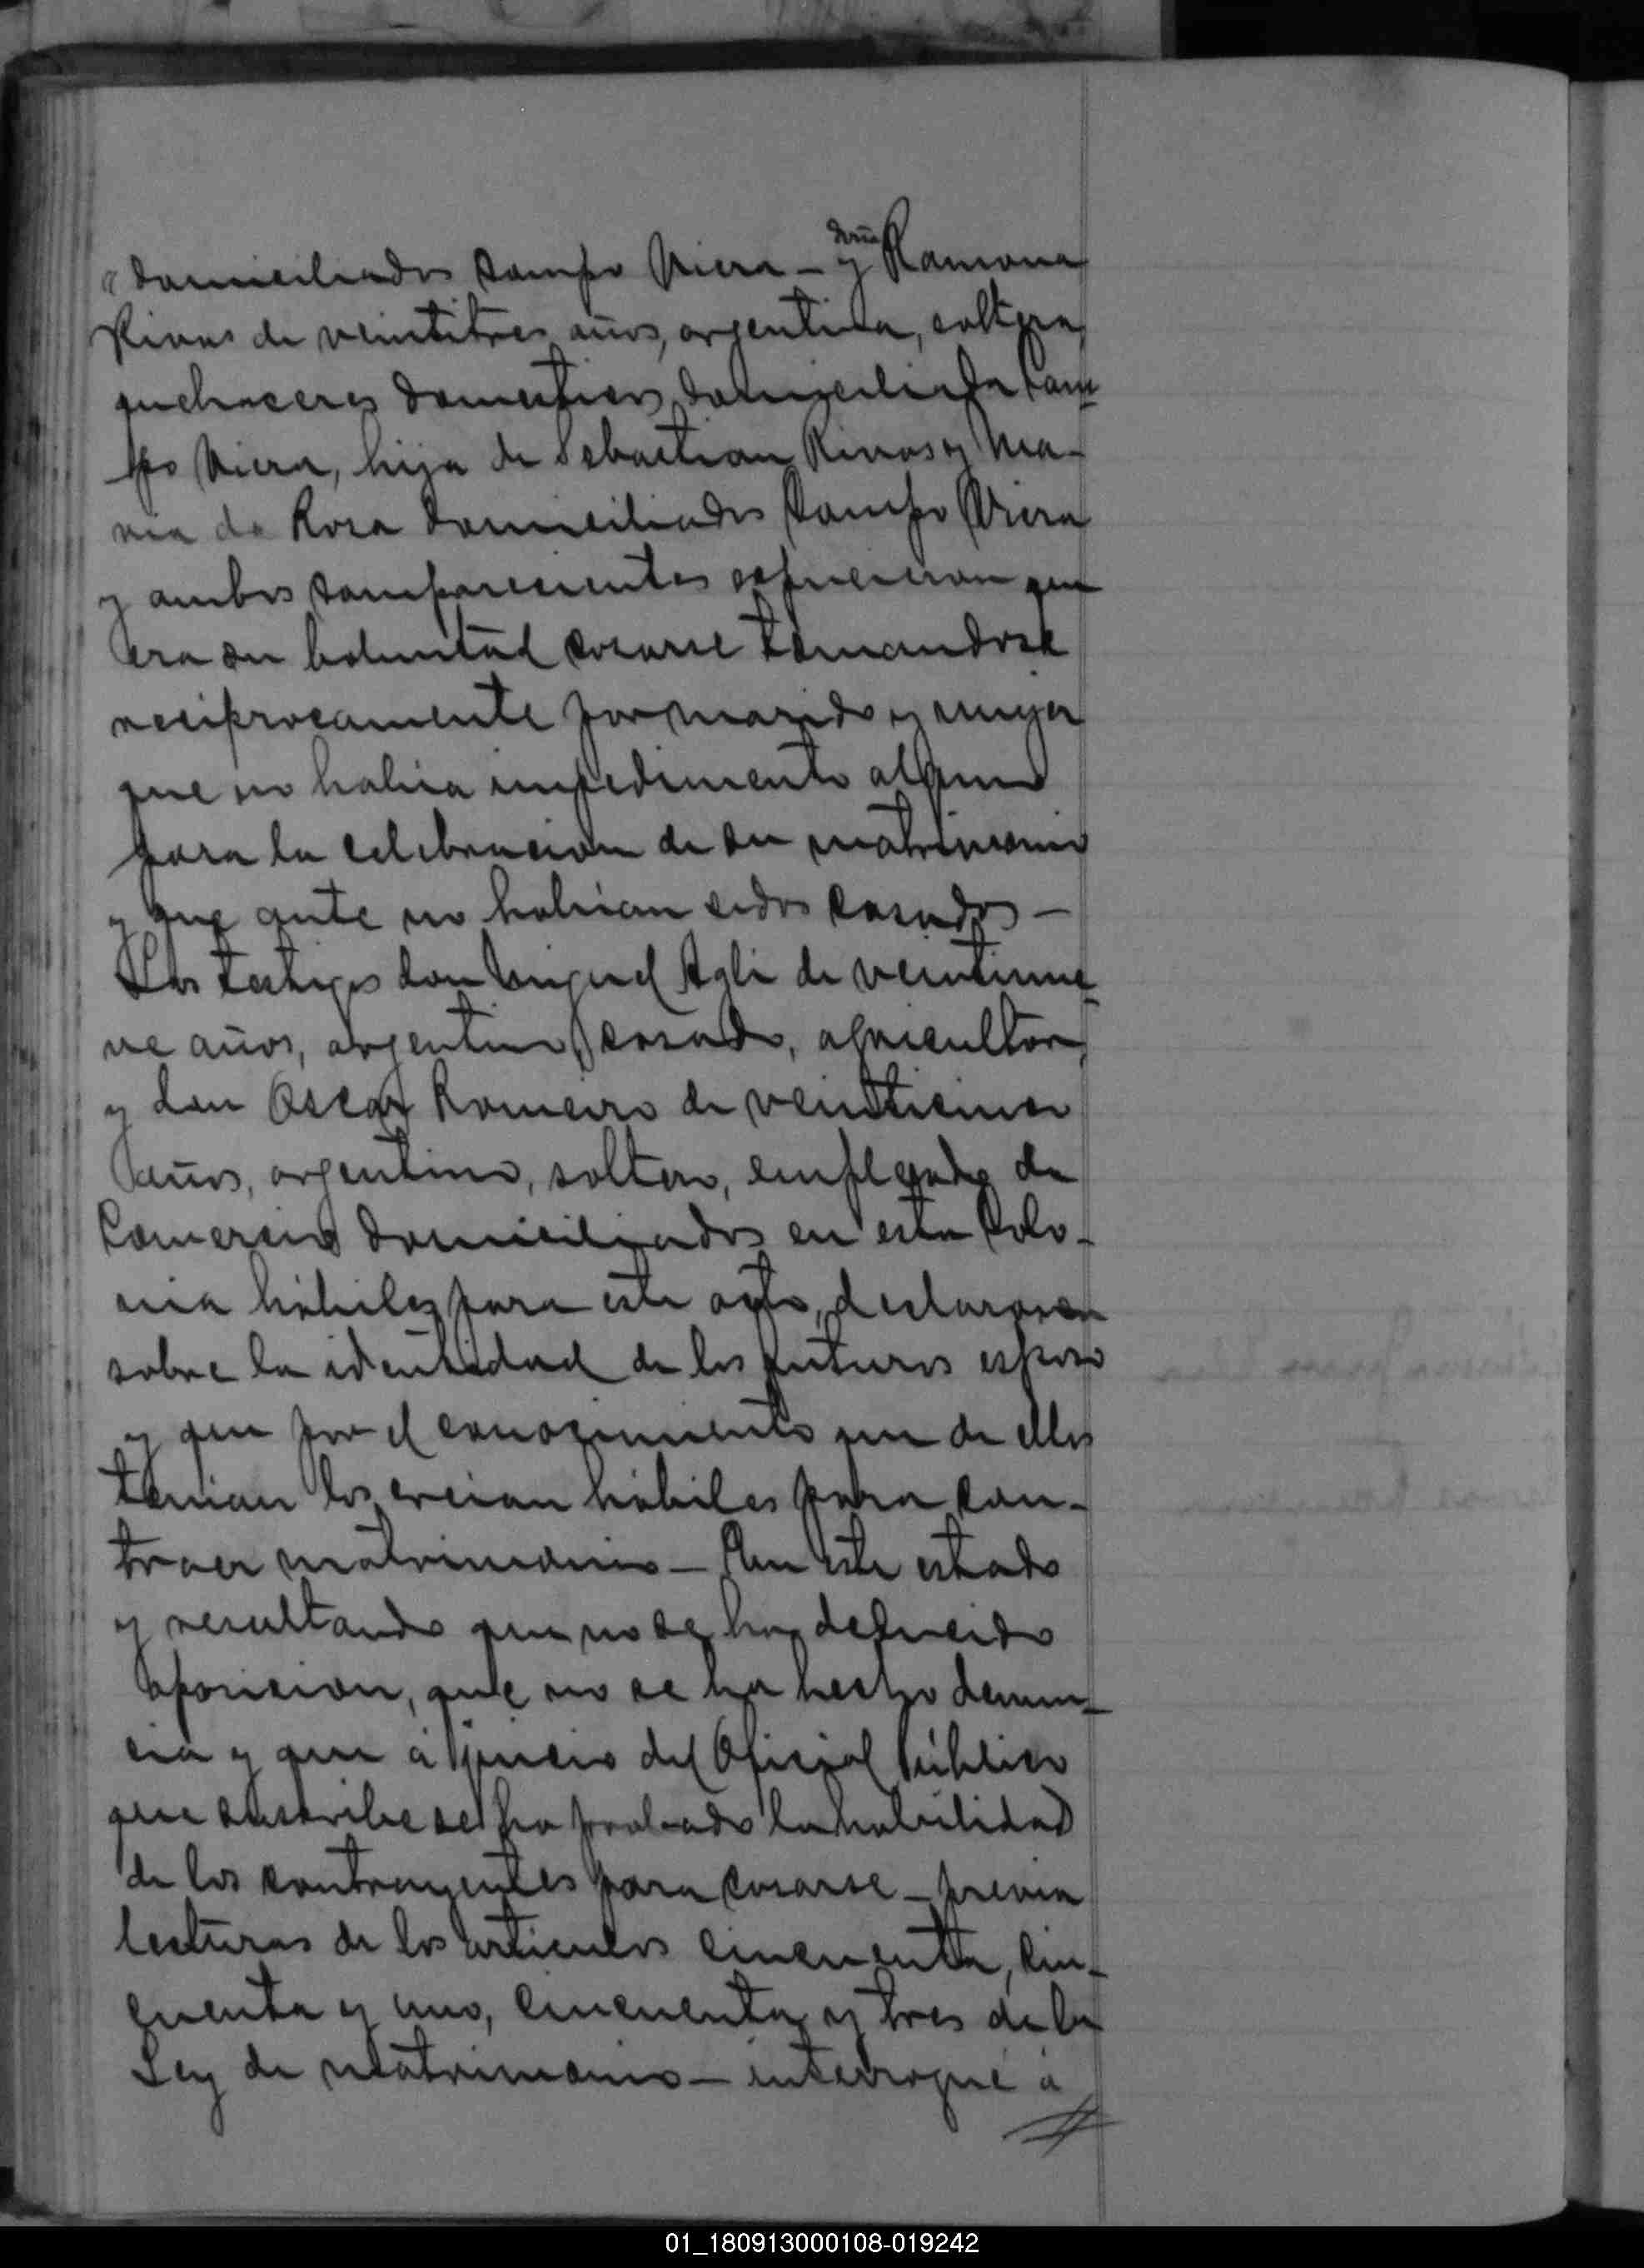 domiciliados Campo Viera - y doña Ramona
Rivas de veintitres años, argentina, soltera,
quehaceres domesticos, domiciliada Cam-
po Viera, hija de Sebastian Rivas y Ma-
ria da Rosa domiciliados Campo Viera
y ambos comparecientes expusieron que
era su boluntad casarse tomandose
reciprocamente por marido y mujer
que no habia impedimento alguno
para la celebracion de su matrimonio
y que ante no habian sidos casados -
Los testigos don Miguel Agli de veintinue-
ve años, argentino, casado, agricultor,
y don Oscar Romeiro de veinticinco
años, argentino, soltero, empleado de
Comercio domiciliados en esta Colo-
nia hábiles para este acto, declararon
sobre la identidad de los futuros esposo
y que por el conocimiento que de ellos
tenian los creian hábiles para con-
traer matrimonio - En este estado
y resultando que no se ha deducido
oposicion, que no se ha hecho denun-
cia y que á juicio del Oficial Público
que suscribe se ha probado la habilidad
de los contrayentes para casarse - previa
lecturas de los articulos cincuenta, cin-
cuenta y uno, cincuenta y tres de la
Ley de Matrimonio - interrogué á
01_180913000108-019242